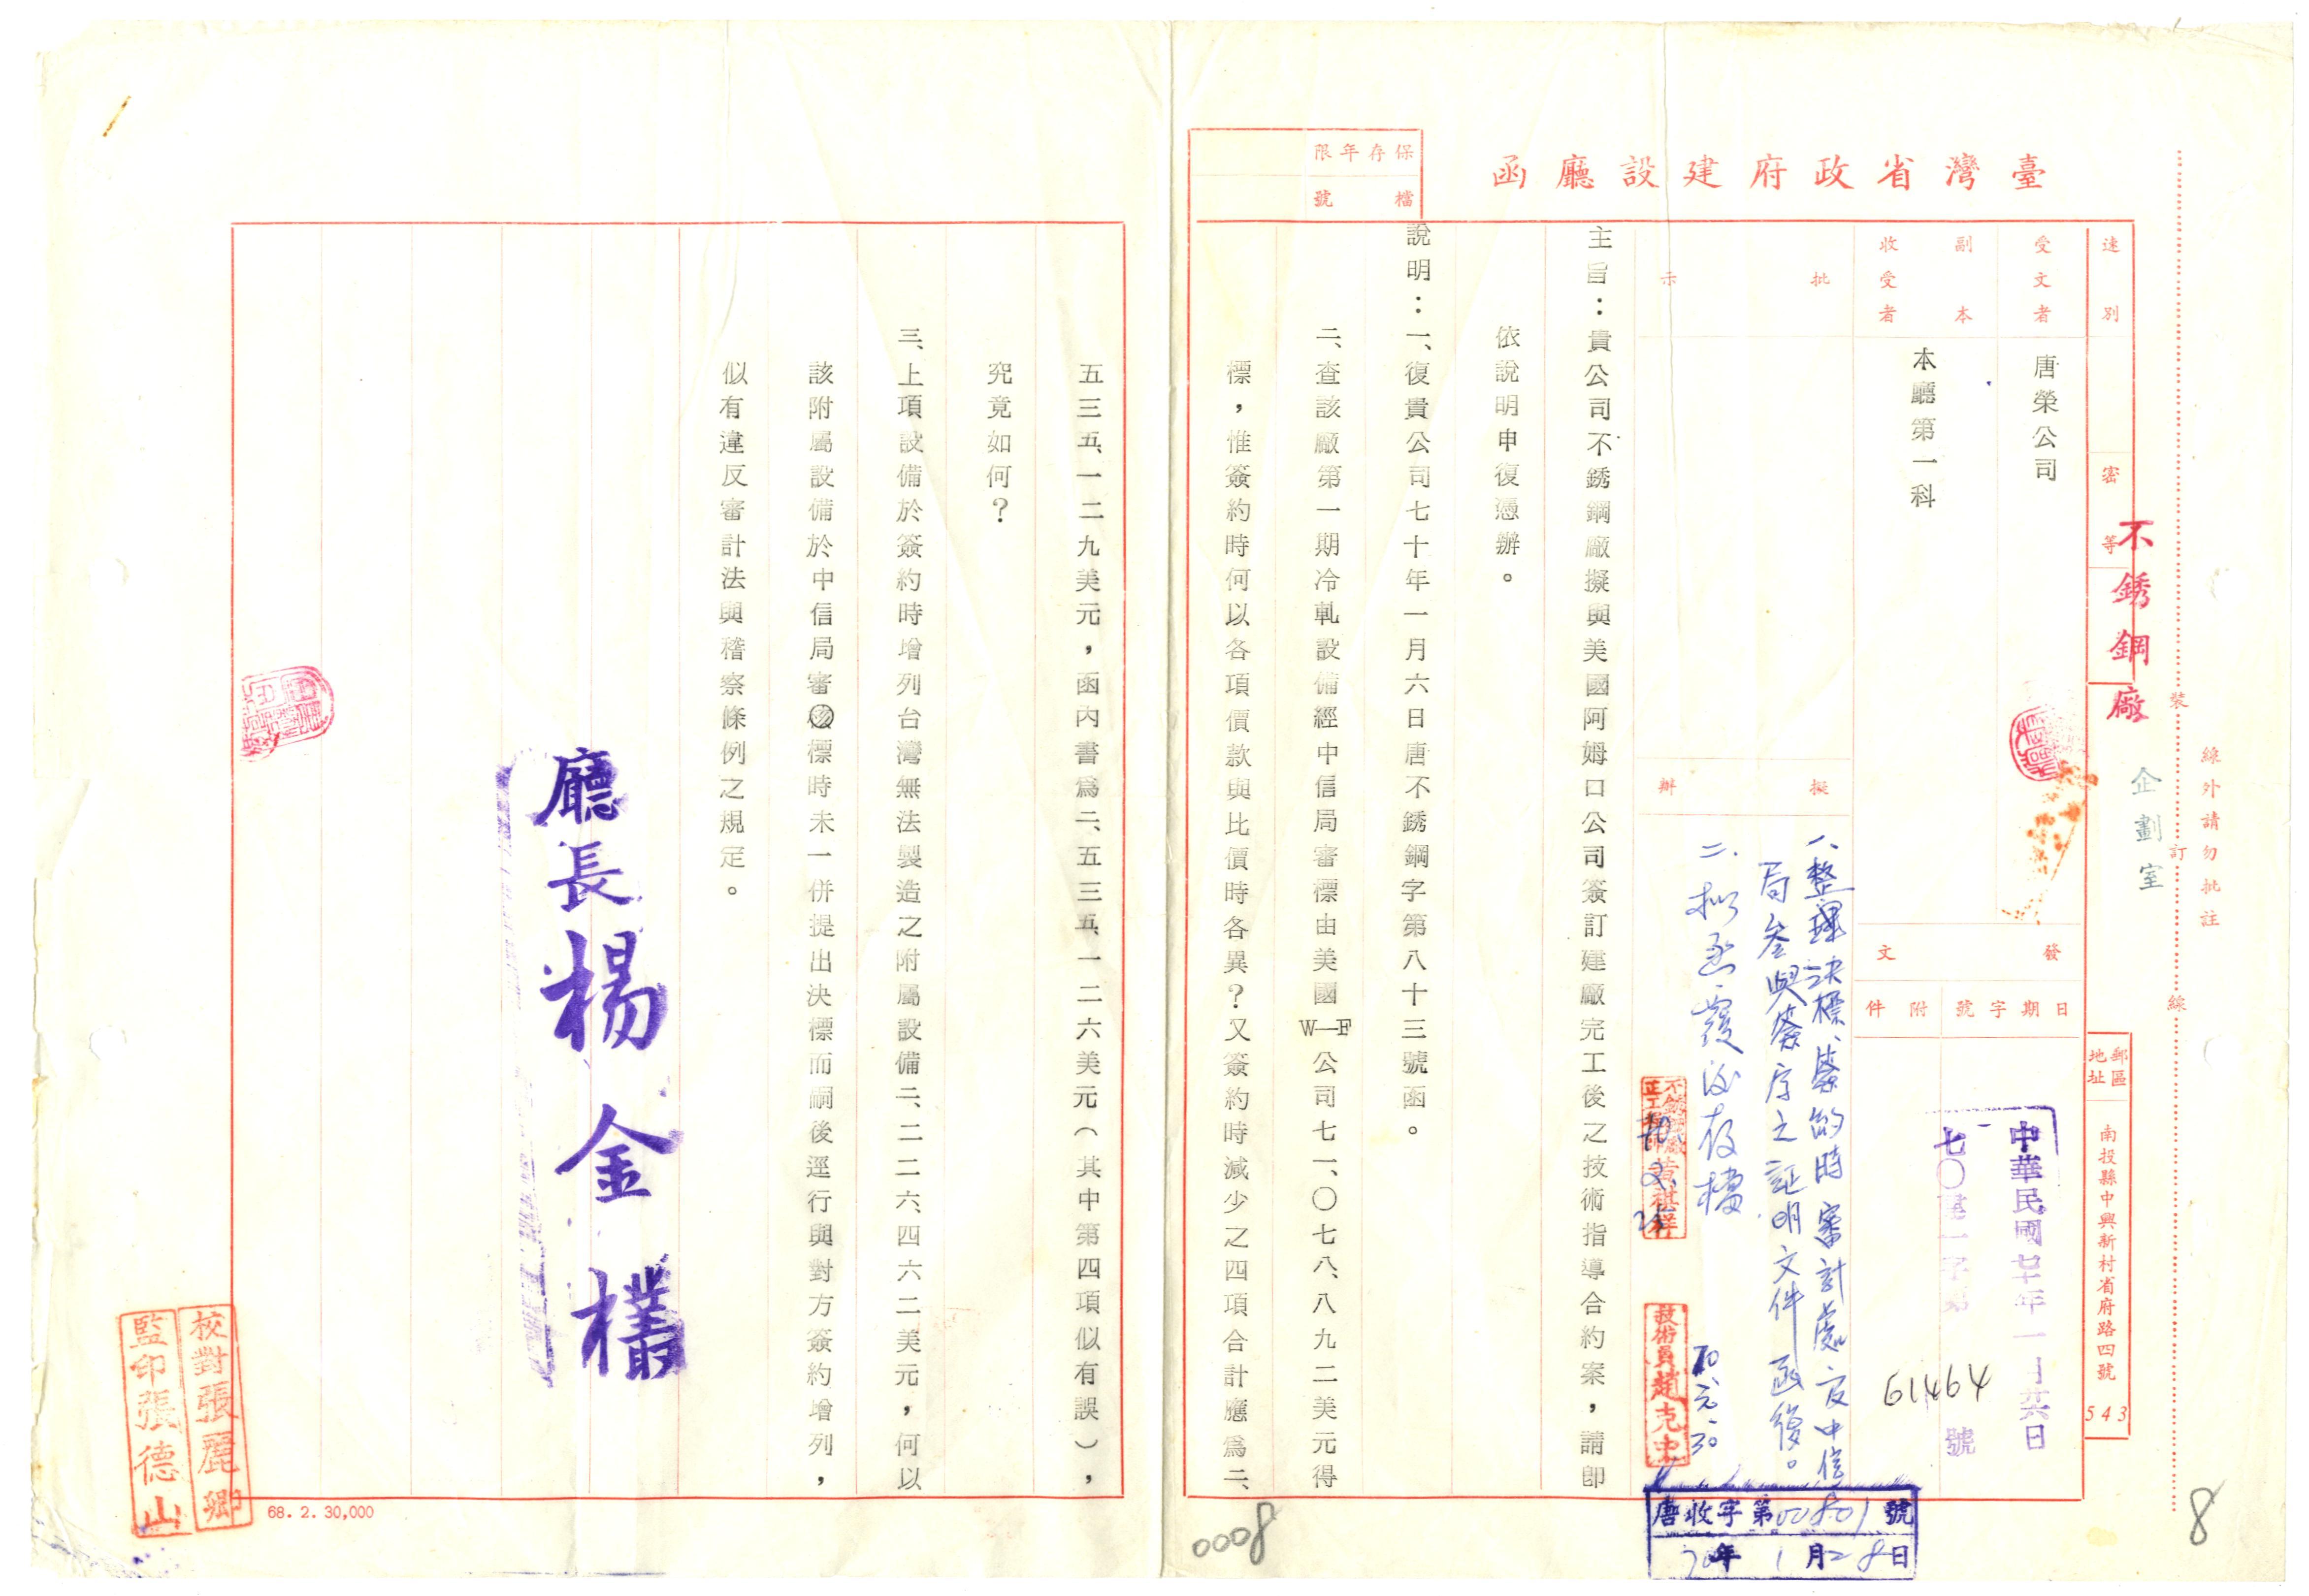 臺灣省政府建設廳函
保存年限
檔號
速別
密等
受文者
唐榮公司
副本收受者
本廳第一科
批示
擬辦
發文
日期字號
附件
中華民國七十年一月廿六日
七〇建一字第
61464
號
郵區
地址
南投縣中興新村省府路四號
543
不銹鋼廠
企劃室
裝
訂
線
線外請勿批註
一、整理決標、簽約時審計處及中信
局參與簽字之証明文件函復。
二、擬函覆後存檔
技術員趙克中
70.元.30
主旨：貴公司不銹鋼廠擬與美國阿姆口公司簽訂建廠完工後之技術指導合約案，請即
依說明申復憑辦。
說明：一、復貴公司七十年一月六日唐不銹鋼字第八十三號函。
二、查該廠第一期冷軋設備經中信局審標由美國W—F公司七一、〇七八、八九二美元得
標，惟簽約時何以各項價款與比價時各異？又簽約時減少之四項合計應為二、
五三五、一二九美元，函內書為二、五三五、一二六美元（其中第四項似有誤），
究竟如何？
三、上項設備於簽約時增列台灣無法製造之附屬設備二、二二六、四六二美元，何以
該附屬設備於中信局審標時未一併提出決標而嗣後逕行與對方簽約增列，
似有違反審計法與稽察條例之規定。
廳長楊金欉
校對張麗卿
監印張德山
68. 2. 30,000
唐收字第00801號
70年1月28日
0008
8